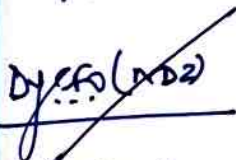 Dy CFO (ND2)